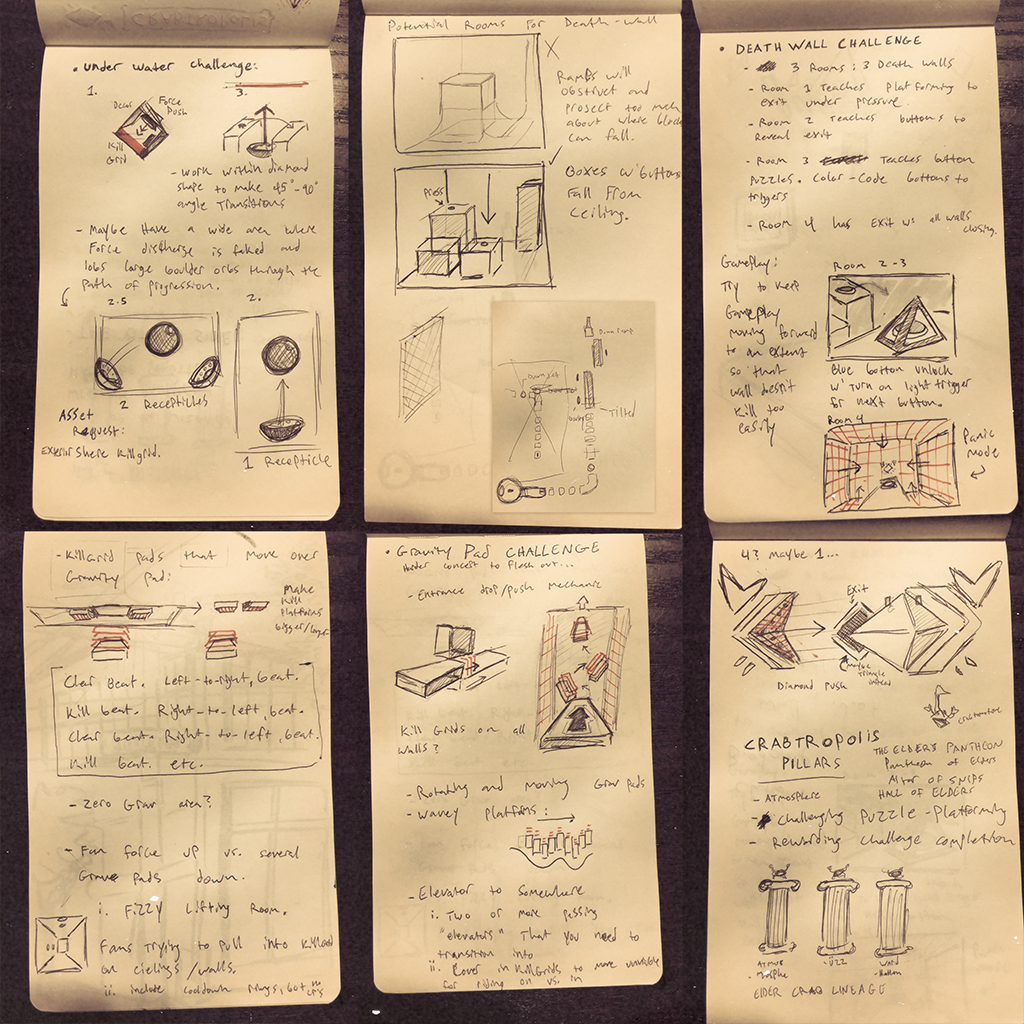 • Under Water challenge:
1.
3.
Decor
Force
Push
Kill
Grid
- Work within diamond
shape to make 45°-90°
angle transitions
- Maybe have a wide area where
Force discharge is faked and
lobs large boulder orbs through the
path of progression.
2.5
2.
2 Recepticles
Asset
Request:
Exterior Shere Killgrid.
1 Recepticle
Potential Rooms for Death-Wall
X
Ramps will
obstruct and
project too much
about where block
can fall.
Press
Boxes w/ buttons
Fall From
Ceiling.
Down ramp
Tilted
• DEATH WALL CHALLENGE
- 3 Rooms: 3 Death Walls
- Room 1 Teaches Platforming to
exit under pressure.
- Room 2 Teaches buttons to
Reveal exit
- Room 3 Teaches button
puzzles. Color-Code buttons to
triggers
- Room 4 has Exit w/ all walls
closing.
Gameplay:
Try to keep
Gameplay
moving forward
to an extent
so that
wall doesn't
kill too
easily
Room 2-3
Blue button unlock
w/ turn on light trigger
for next button.
Room 4
Panic
mode
- Killgrid pads that move over
Gravity Pad:
Make
Kill
Platforms
bigger/longer
Clear Beat. Left-to-right, beat.
Kill beat. Right-to-left, beat.
Clear beat. Right-to-left, beat.
Kill beat. etc.
- Zero Grav area?
- Fan force up vs. several
Grav Pads down.
i. Fizzy Lifting Room.
Fans trying to pull into Killgrid
on cielings/walls.
ii. include cooldown rings, but
• Gravity Pad CHALLENGE
Harder concept to flesh out...
- Entrance drop/push mechanic
Kill Grids on all
walls?
- Rotating and moving Grav Pads
- Wavey platforms:
- Elevator to somewhere
i. Two or more passing
"elevators" That you need to
transition into
ii. Cover in KillGrids to more variable
for riding on vs. in
4? Maybe 1...
Exit
Maybe
triangle
instead
Diamond Push
CRABTROPOLIS
PILLARS
THE ELDER'S PANTHEON
Pantheon of Elders
Altar OF SNIPS
HALL OF ELDERS
- ATMOSPHERE
- Challenging Puzzle-Platforming
- Rewarding Challenge completion
ATMOS
-Mosphe
-UZZ
Ward
ELDER CRAB LINEAGE